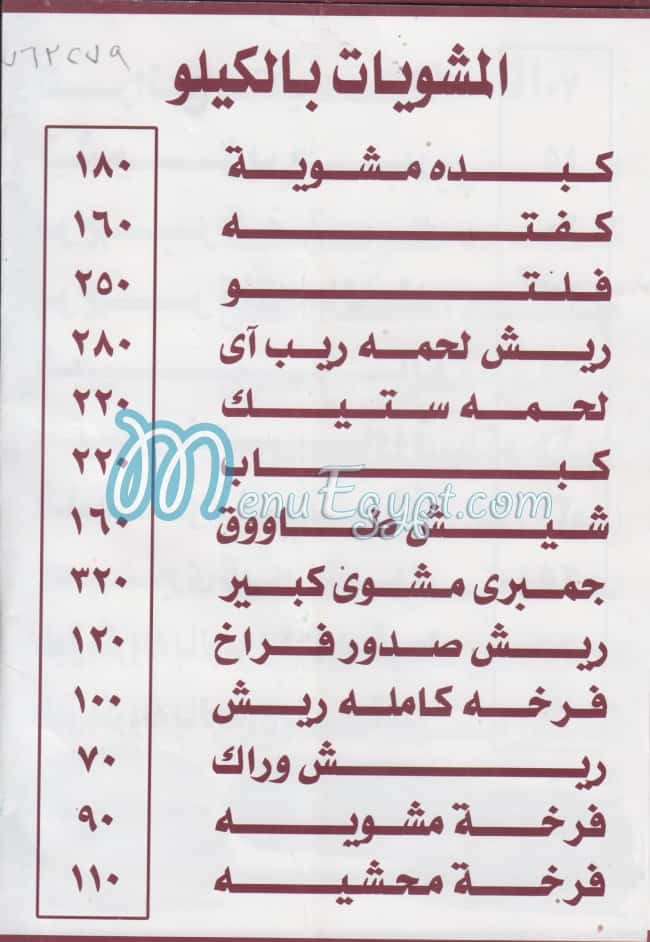 المشويات بالكيلو
كبده مشوية ١٨٠
كفته ١٦٠
فلتو ٢٥٠
ريش لحمه ريب آى ٢٨٠
لحمه ستيك ٢٢٠
كباب ٢٢٠
MenuEgypt.com
شيش طاووق ١٦٠
جمبرى مشوى كبير ٣٢٠
ريش صدور فراخ ١٢٠
فرخه كامله ريش ١٠٠
ريش وراك ٧٠
فرخة مشويه ٩٠
فرخة محشيه ١١٠